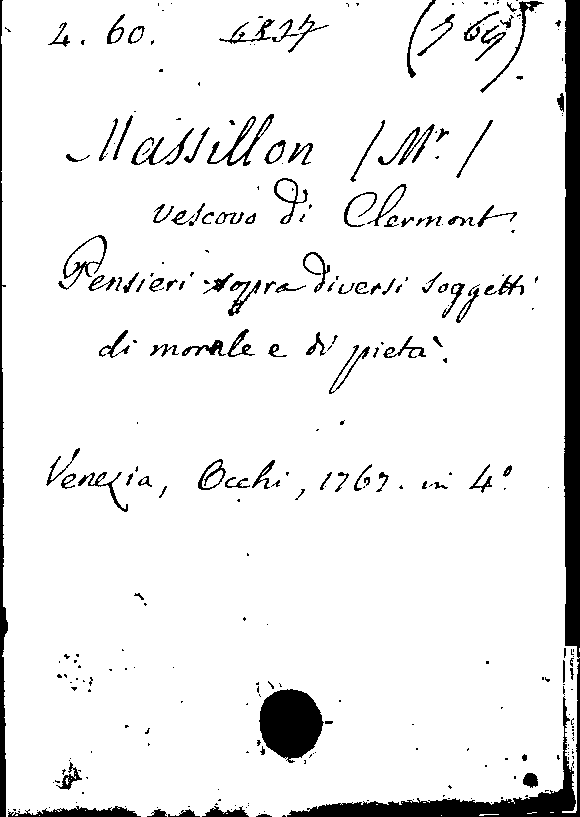 L. 60. (369)
Massillon (Mr.)
vescovo di Clermont.
Pensieri sopra diversi soggetti
di morale e di pietà.
Venezia, Occhi, 1767. in 4°.